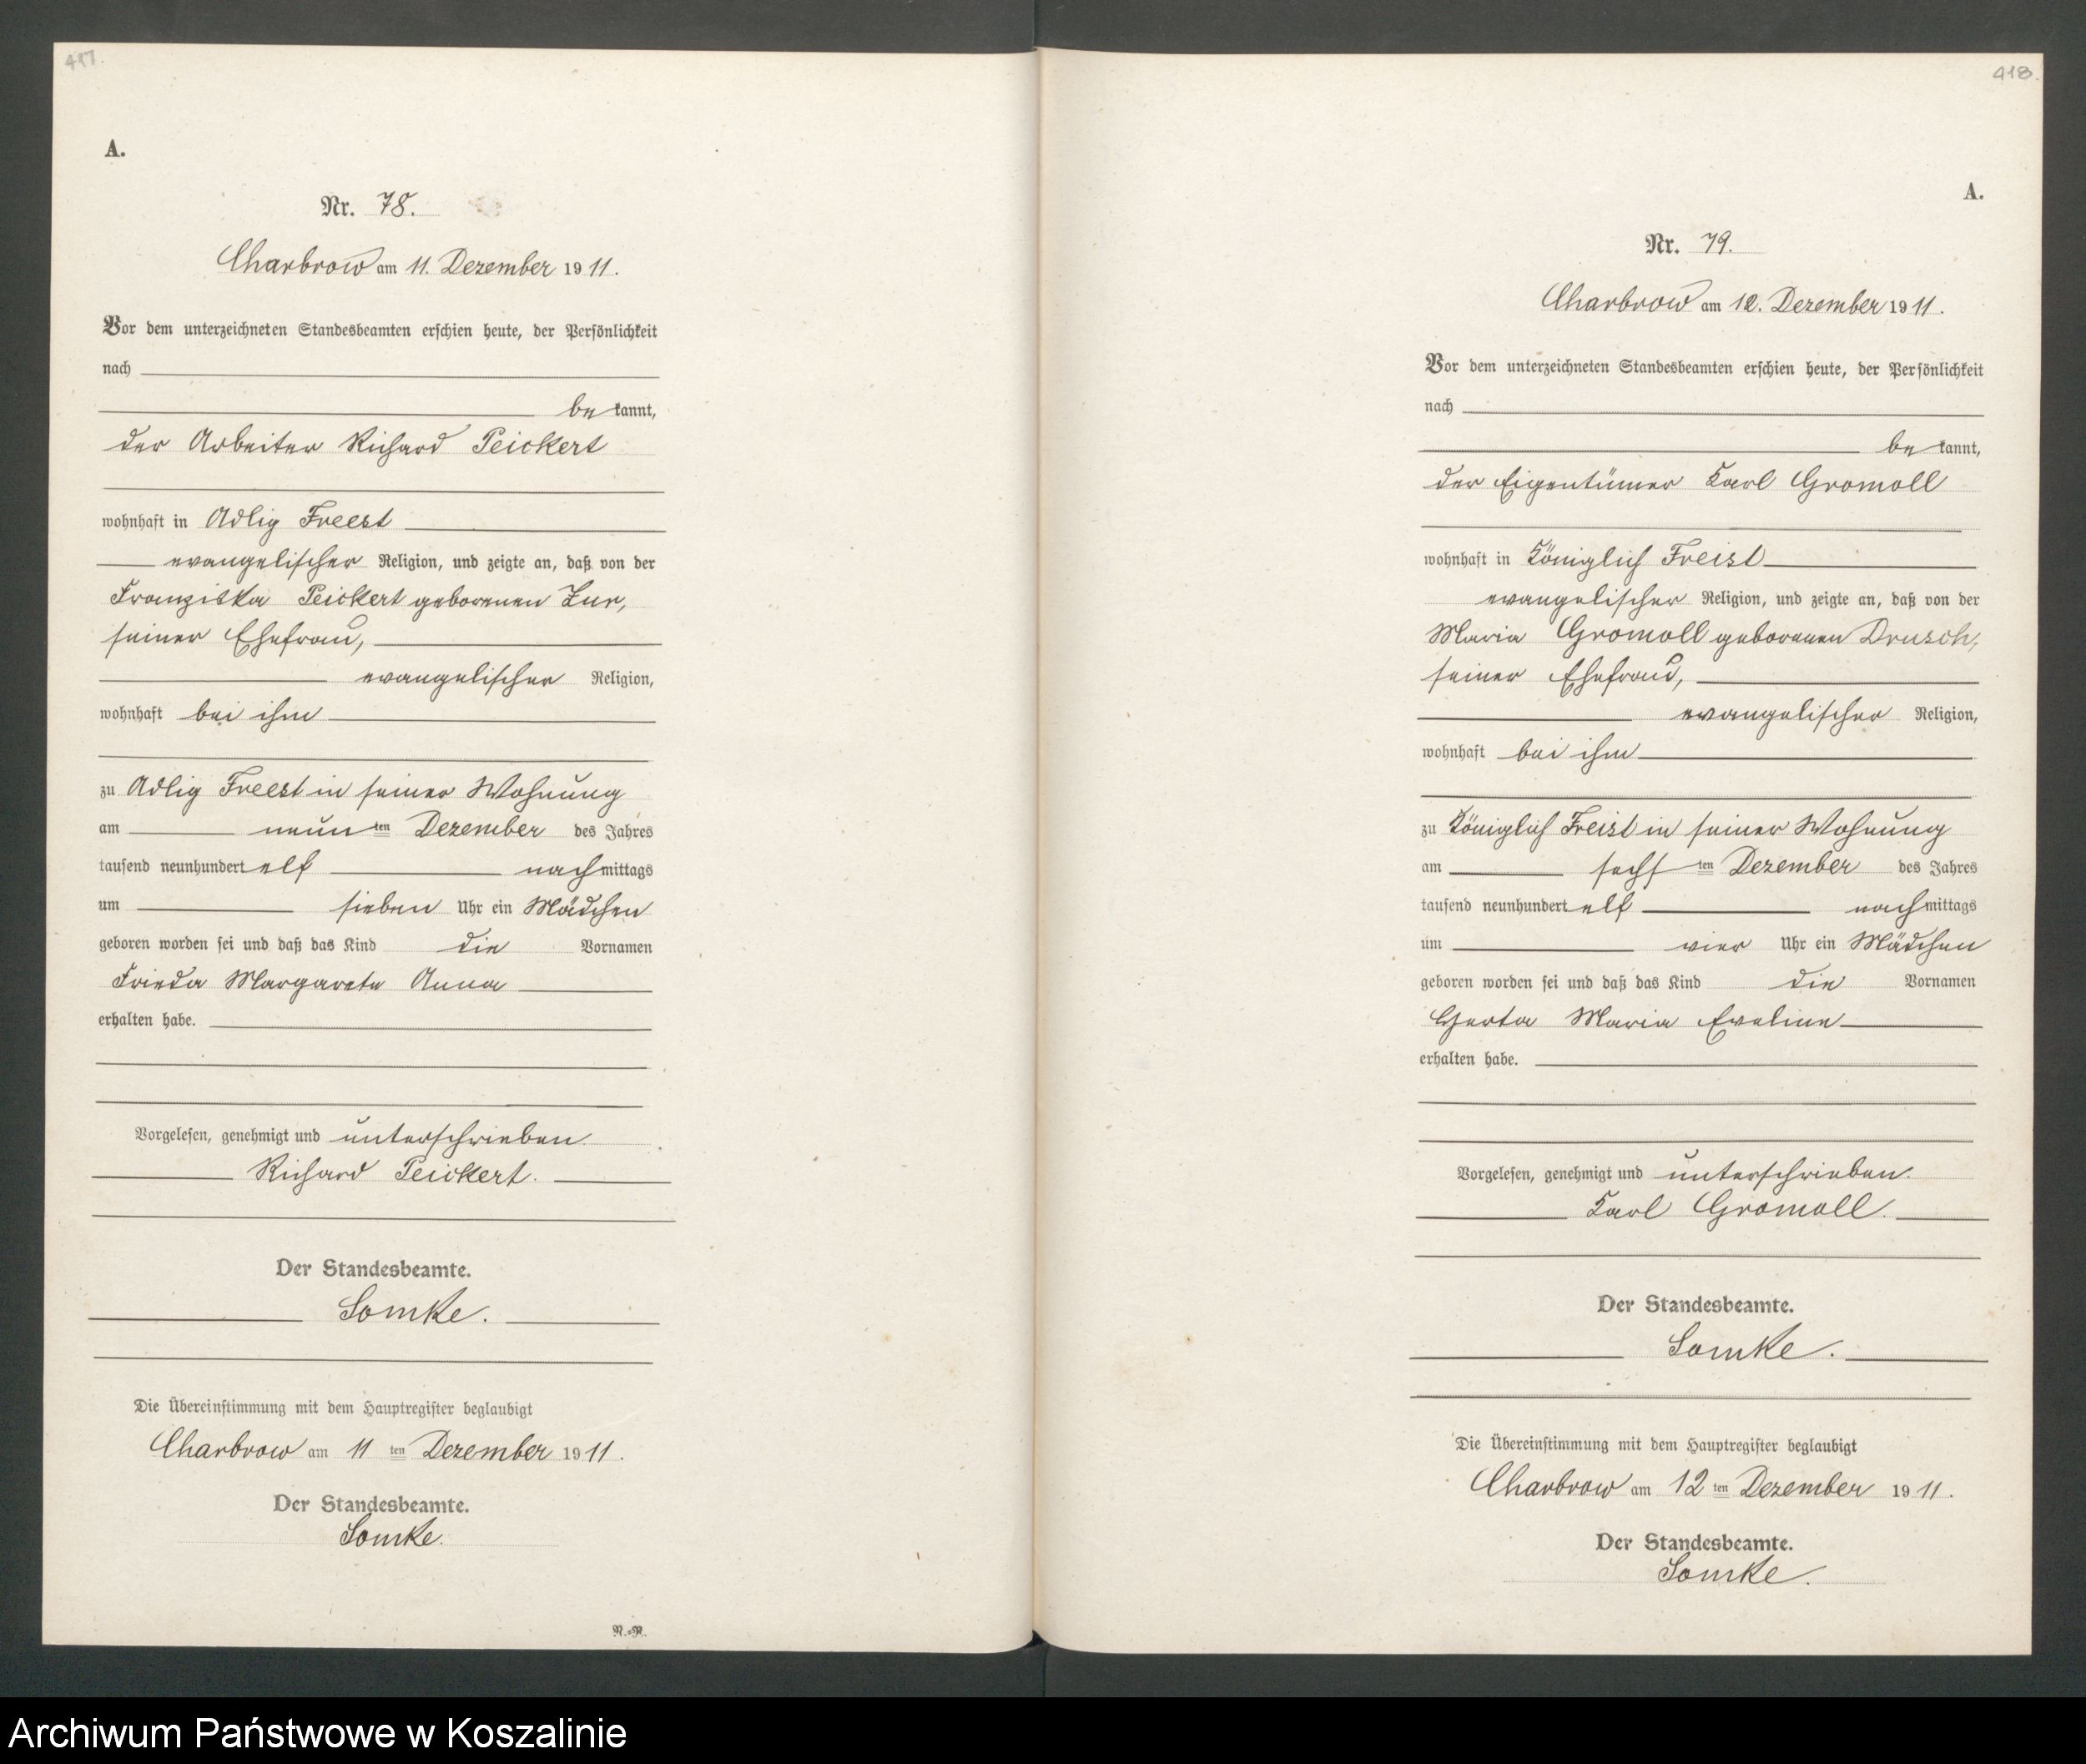 417.
A.
Nr. 78.
Charbrow am 11. Dezember 1911.
Vor dem unterzeichneten Standesbeamten erschien heute, der Persönlichkeit
nach
bekannt,
der Arbeiter Richard Peickert
wohnhaft in Adlig Freest
evangelischer Religion, und zeigte an, daß von der
Franziska Peickert geborenen Zur,
seiner Ehefrau,
evangelischer Religion,
wohnhaft bei ihm
zu Adlig Freest in seiner Wohnung
am neunten Dezember des Jahres
tausend neunhundert elf nachmittags
um sieben Uhr ein Mädchen
geboren worden sei und daß das Kind die Vornamen
Frieda Margarete Anna
erhalten habe.
Vorgelesen, genehmigt und unterschrieben
Richard Peickert.
Der Standesbeamte.
Somke.
Die Übereinstimmung mit dem Hauptregister beglaubigt
Charbrow am 11ten Dezember 1911.
Der Standesbeamte.
Somke.
418.
A.
Nr. 79.
Charbrow am 12. Dezember 1911.
Vor dem unterzeichneten Standesbeamten erschien heute, der Persönlichkeit
nach
bekannt,
der Eigentümer Karl Gromoll
wohnhaft in Königlich Freist
evangelischer Religion, und zeigte an, daß von der
Maria Gromoll geborenen Drusch,
seiner Ehefrau,
evangelischer Religion,
wohnhaft bei ihm
zu Königlich Freist in seiner Wohnung
am sechsten Dezember des Jahres
tausend neunhundert elf nachmittags
um vier Uhr ein Mädchen
geboren worden sei und daß das Kind die Vornamen
Gerta Maria Eveline
erhalten habe.
Vorgelesen, genehmigt und unterschrieben.
Karl Gromoll.
Der Standesbeamte.
Somke.
Die Übereinstimmung mit dem Hauptregister beglaubigt
Charbrow am 12ten Dezember 1911.
Der Standesbeamte.
Somke.
Archiwum Państwowe w Koszalinie